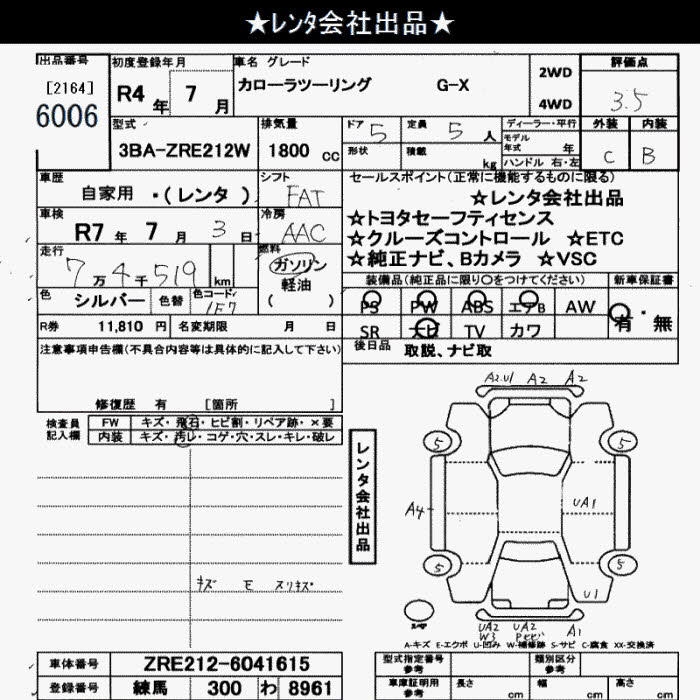 ★レンタ会社出品★
出品番号 初度登録年月 車名 グレード 評価点
[2164] R4年 7月 カローラツーリング G-X 2WD 3.5
6006 4WD
型式 排気量 ドア 5 定員 5人 ディーラー・平行 外装 内装
3BA-ZRE212W 1800 cc 形状 積載 kg モデル年式 年 C B
ハンドル 右・左
車歴 シフト セールスポイント(正常に機能するものに限る)
自家用 ・(レンタ) FAT ☆レンタ会社出品
車検 冷房 ☆トヨタセーフティセンス
R7年 7月 3日 AAC ☆クルーズコントロール ☆ETC
走行 燃料 ☆純正ナビ、Bカメラ ☆VSC
7万4千519 km ガソリン
軽油
( )
装備品(純正品に限り○をつけてください) 新車保証書
色 シルバー 色替 色コード 1F7 PS PW ABS エアB AW 有・無
R券 11,810円 名変期限 月 日 SR ナビ TV カワ
注意事項申告欄(不具合内容等は具体的に記入して下さい) 後日品 取説、ナビ取
修復歴 有 [箇所 ]
検査員記入欄 FW キズ・飛石・ヒビ割・リペア跡・×要
内装 キズ・汚レ・コゲ・穴・スレ・キレ・破レ
レンタ会社出品
A2.U1 A2 A2
5 5
A4 UA1
5 5
U1
キズ モ スリキズ
スペア UA2 W3 UA2 A1
A-キズ E-エクボ U-凹み W-補修跡 S-サビ C-腐食 XX-交換済
車体番号 ZRE212-6041615 型式指定番号 参考 類別区分 参考
登録番号 練馬 300 わ 8961 車庫証明用 参考 長さ cm 幅 cm 高さ cm